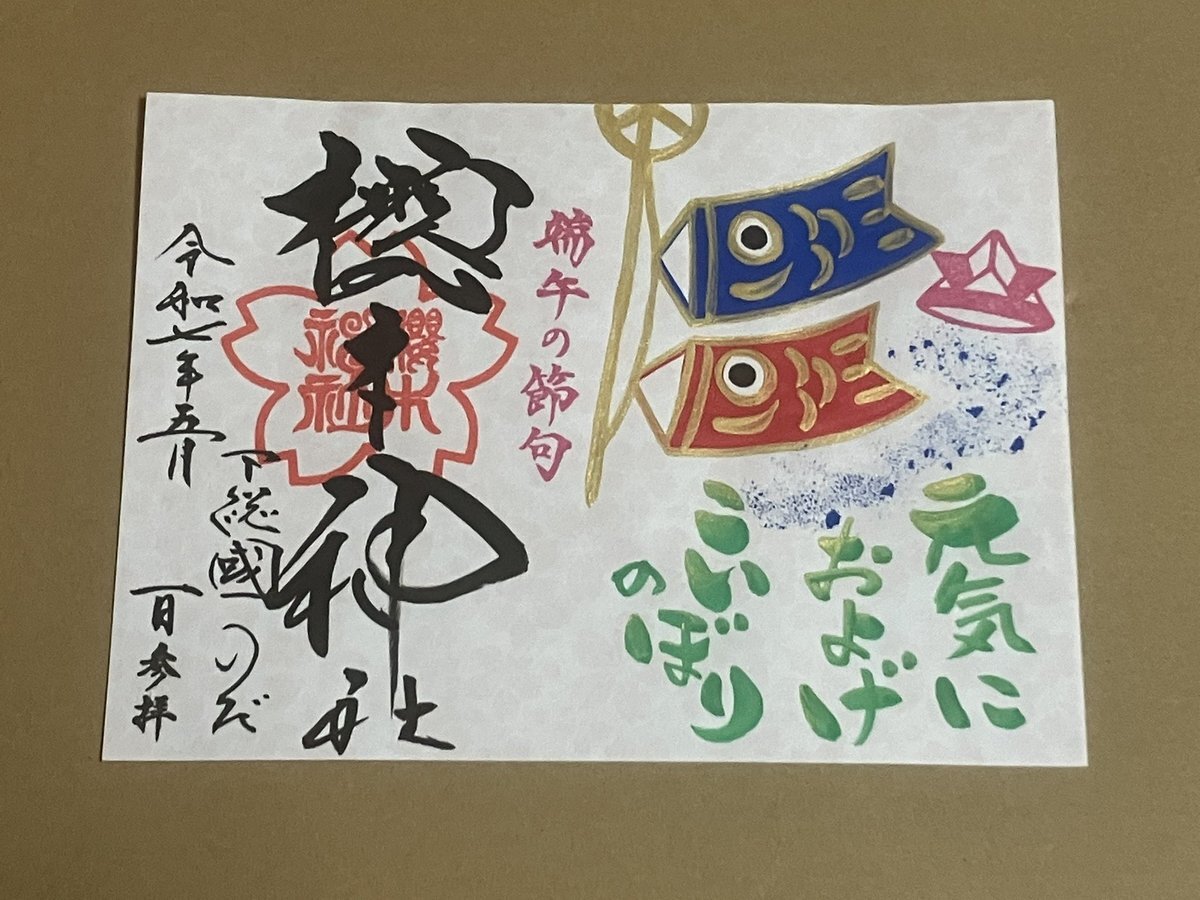 元気に
およげ
こい
のぼり
端午の節句
櫻木神社
櫻木
神社
下総國のだ
令和七年五月
一日参拝